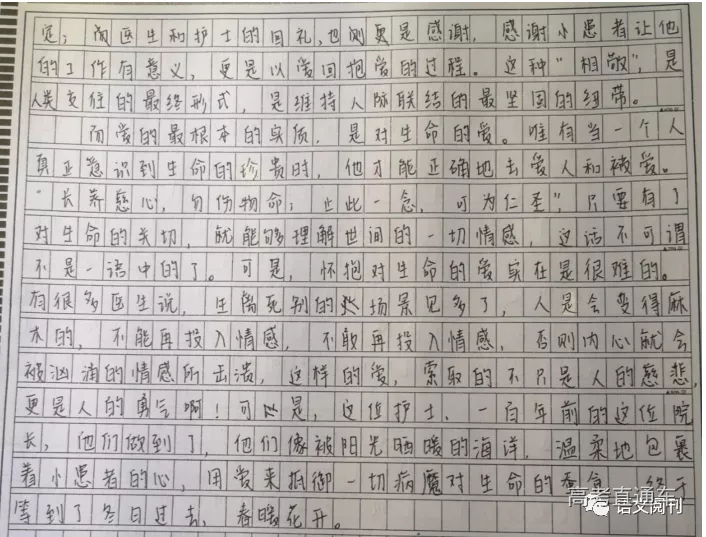 宽；而医生和护士的回礼，也则更是感谢，感谢小患者让他
的工作有意义，更是以爱回报爱的过程。这种“相敬”，是
人类交往的最终形式，是维持人脉联结的最坚固的纽带。
而爱的最根本的实质，是对生命的爱。唯有当一个人
真正意识到生命的珍贵时，他才能正确地去爱人和被爱。
“长养慈心，勿伤物命；止此一念，可为仁圣”，只要有了
对生命的关切，就能够理解世间的一切情感，这话不可谓
不是一语中的了。可是，怀抱对生命的爱实在是很难的。
有很多医生说，生离死别的场景见多了，人是会变得麻
木的，不能再投入情感，不敢再投入情感，否则内心就会
被汹涌的情感所击溃，这样的爱，索取的不只是人的慈悲，
更是人的勇气啊！可是，这位护士、一百年前的这位院
长，他们做到了，他们像被阳光晒暖的海洋，温柔地包裹
着小患者的心，用爱来抵御一切病魔对生命的蚕食，终于
等到了冬日过去，春暖花开。
高考直通车
语文阅刊